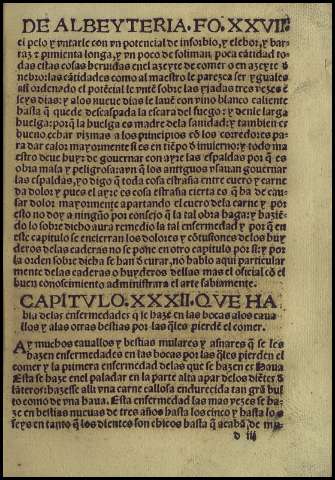 DE ALBEYTERIA. FO. XXVII.
el pelo y vntarle con vn potencial de inforbio, y elebor, y bar-
raz & pimienta longa, y vn poco de soliman poca cãtidad to-
das estas cosas heruidas en el azeyte de comer o en azeyte d̃
nebro: las cãtidades como al maestro le parezca ser yguales
assi ordenado el potẽcial le vntẽ sobre las yjadas tres vezes ẽ
seys dias: y alos nueue dias le lauẽ con vino blanco caliente
hasta q̃ quede descaspada la escara del fuego: y denle larga
huelga: porq̃ la huelga es madre dela sanidad: y tambien es
bueno echar vizmas a los principios cõ los corredores pa-
ra dar calor mayormente si es en tiẽpo d̃ inuierno: y todo ma-
estro deue huyr de gouernar con ayre las espaldas por q̃ es
obra mala y peligrosa: ayn q̃ los antiguos vsauan gouernar
las espaldas, yo digo q̃ toda cosa estraña entre cuero y carne
da dolor y pues el ayre es cosa estraña cierta es q̃ ha de cau-
sar dolor mayormente apartando el cuero dela carne y por
esto no doy a ninguno por consejo q̃ la tal obra haga: y haziẽ-
do lo sobre dicho aura remedio la tal enfermedad y por q̃ en
este capitulo se encierran los dolores y cõtusiones delos huy
deros delas caderas no se põne en otro capitulo por si: y por
la orden sobre dicha se han d̃ curar, no hablo aqui particular
mente delas caderas o huyderos dellas mas el oficial cõ el
buen conoscimiento administrara el arte sabiamente.
CAPITVLO. XXXII. QVE HA
bla delas enfermedades q̃ le hazẽ en las bocas alos caua-
llos y alas otras bestias por las q̃les pierdẽ el comer.
Ay muchos cauallos y bestias mulares y asnares q̃ se les
hazen enfermedades en las bocas por las q̃les pierden el
comer y la primera enfermedad delas que se hazen es Haua
Esta se haze en el paladar en la parte alta apar delos diẽtes d̃
lãteros: hazesse alli vna carne callosa endurecida tan grã bul
to como de vna haua. Esta enfermedad las mas vezes se ha-
ze en bestias nueuas de tres años hasta los cinco y hasta los
seys en tanto q̃ los dientes son chicos hasta q̃ acabã de mu-
d iij